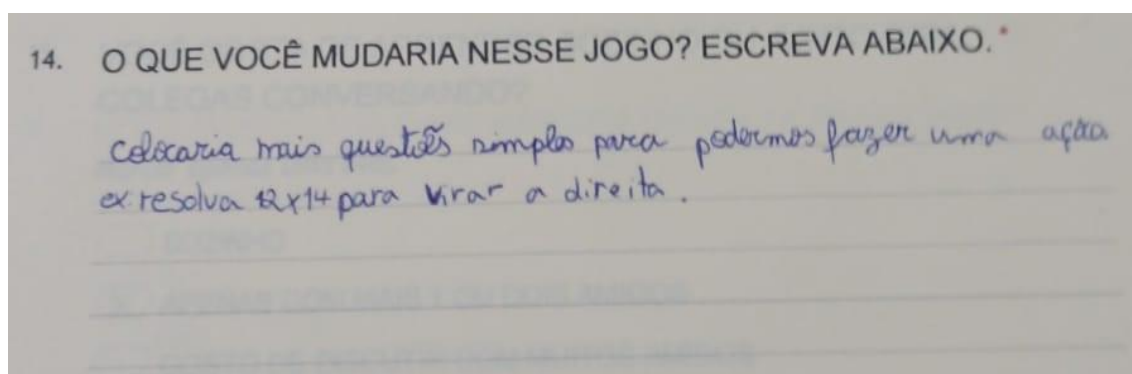 14. O QUE VOCÊ MUDARIA NESSE JOGO? ESCREVA ABAIXO.*
colocaria mais questões simples para podermos fazer uma ação
ex: resolva 12x14 para virar a direita.